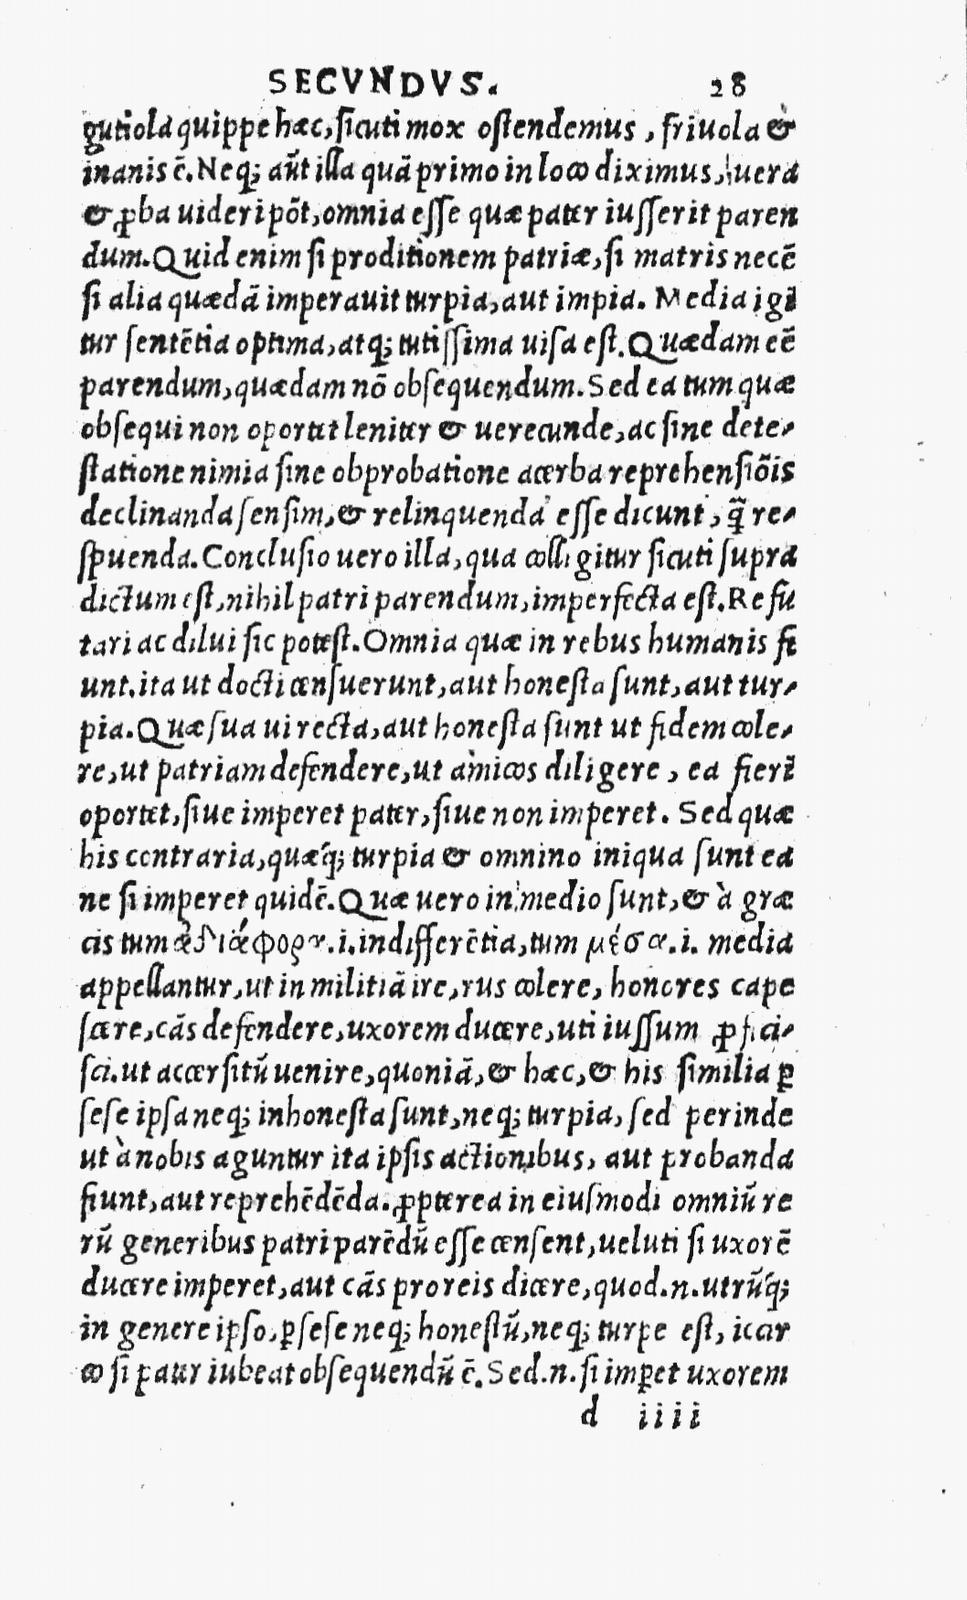 SECVNDVS. 28
gutiola quippe hæc, sicuti mox ostendemus, friuola &
inanis ē. Neq; aūt illa quā primo in loco diximus, uera
& ꝓba uideri pōt, omnia esse quæ pater iusserit paren
dum. Quid enim si proditionem patriæ, si matris necē
si alia quædā imperauit turpia, aut impia. Media igi
tur sentētia optima, atq; tutissima uisa est. Quædam eē
parendum, quædam nō obsequendum. Sed ea tum quæ
obsequi non oportet leniter & uerecunde, ac sine dete-
statione nimia sine obprobatione acerba reprehensiōis
declinanda sensim, & relinquenda esse dicunt, q̄̃ re-
spuenda. Conclusio uero illa, qua colligitur sicuti supra
dictum est, nihil patri parendum, imperfecta est. Refu
tari ac dilui sic potest. Omnia quæ in rebus humanis fi
unt. ita ut docti censuerunt, aut honesta sunt, aut tur-
pia. Quæ sua ui recta, aut honesta sunt ut fidem cole-
re, ut patriam defendere, ut amicos diligere, ea fieri
oportet, siue imperet pater, siue non imperet. Sed quæ
his contraria, quæq́; turpia & omnino iniqua sunt ea
ne si imperet quidē. Quæ uero in medio sunt, & à græ
cis tum ἀδιάφορα .i. indifferētia, tum μέσα .i. media
appellantur, ut in militiā ire, rus colere, honores cape
scere, cās defendere, uxorem ducere, uti iussum ꝓfici-
sci. ut accersitū uenire, quoniā, & hæc, & his similia ꝑ
sese ipsa neq; inhonesta sunt, neq; turpia, sed perinde
ut à nobis aguntur ita ipsis actionibus, aut probanda
fiunt, aut reprehēdēda. ꝓpterea in eiusmodi omniū re
rū generibus patri parēdū esse censent, ueluti si uxorē
ducere imperet, aut cās pro reis dicere, quod .n. utrūq́;
in genere ipso, ꝑ sese neq; honestū, neq; turpe est, icir
co si pater iubeat obsequendū ē. Sed .n. si imꝑet uxorem
d iiii